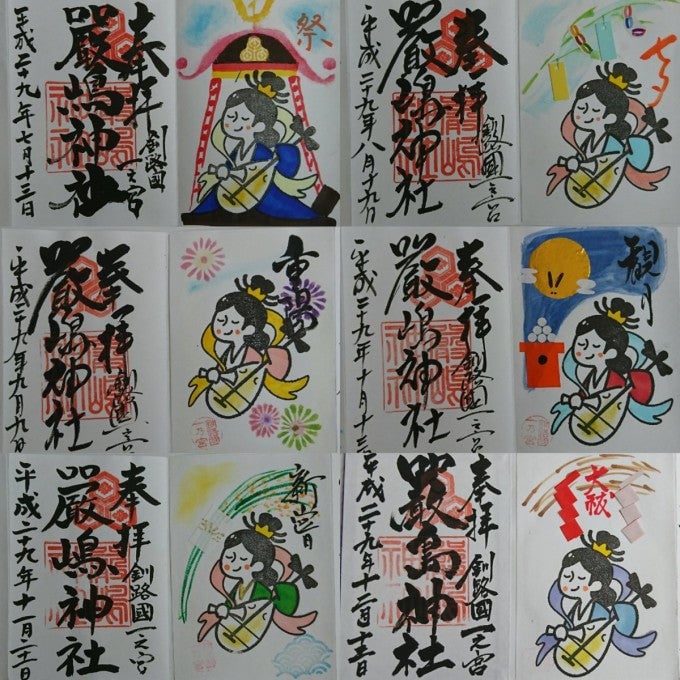 奉拝
釧路國一之宮
嚴嶋神社
平成二十九年七月十三日
祭
奉拝
釧路國一之宮
嚴嶋神社
平成二十九年八月十九日
七夕
奉拝
釧路國一之宮
嚴嶋神社
平成二十九年九月九日
重陽
奉拝
釧路國一之宮
嚴嶋神社
平成二十九年十月十三日
観月
奉拝
釧路國一之宮
嚴嶋神社
平成二十九年十一月
奉拝
釧路國一之宮
嚴島神社
平成二十九年十二月
大祓